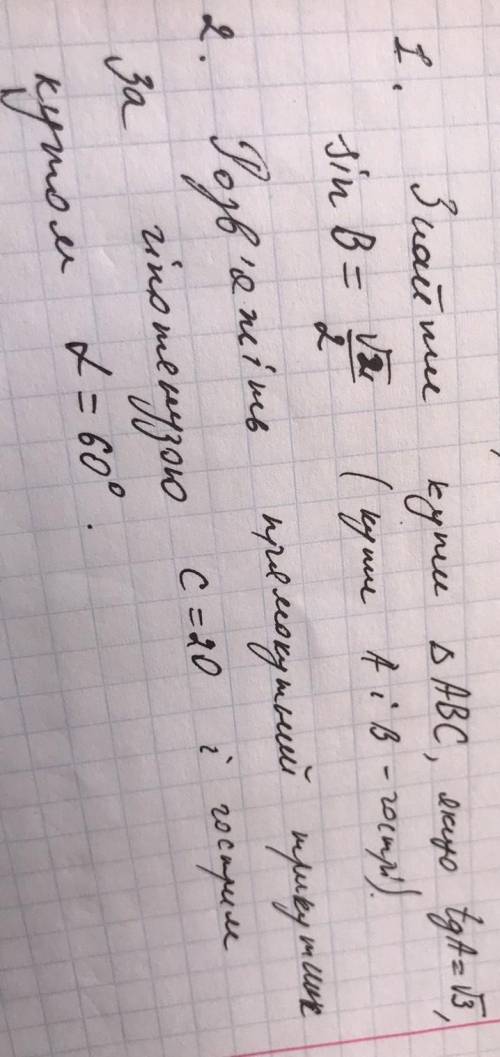 1. Знайти кути ΔABC, якщо tgA = √3,
sin B = √2/2 (кути A і B - гострі).
2. Розв'яжіть прямокутний трикутник
За гіпотенузою c = 20 і гострим
кутом α = 60°.